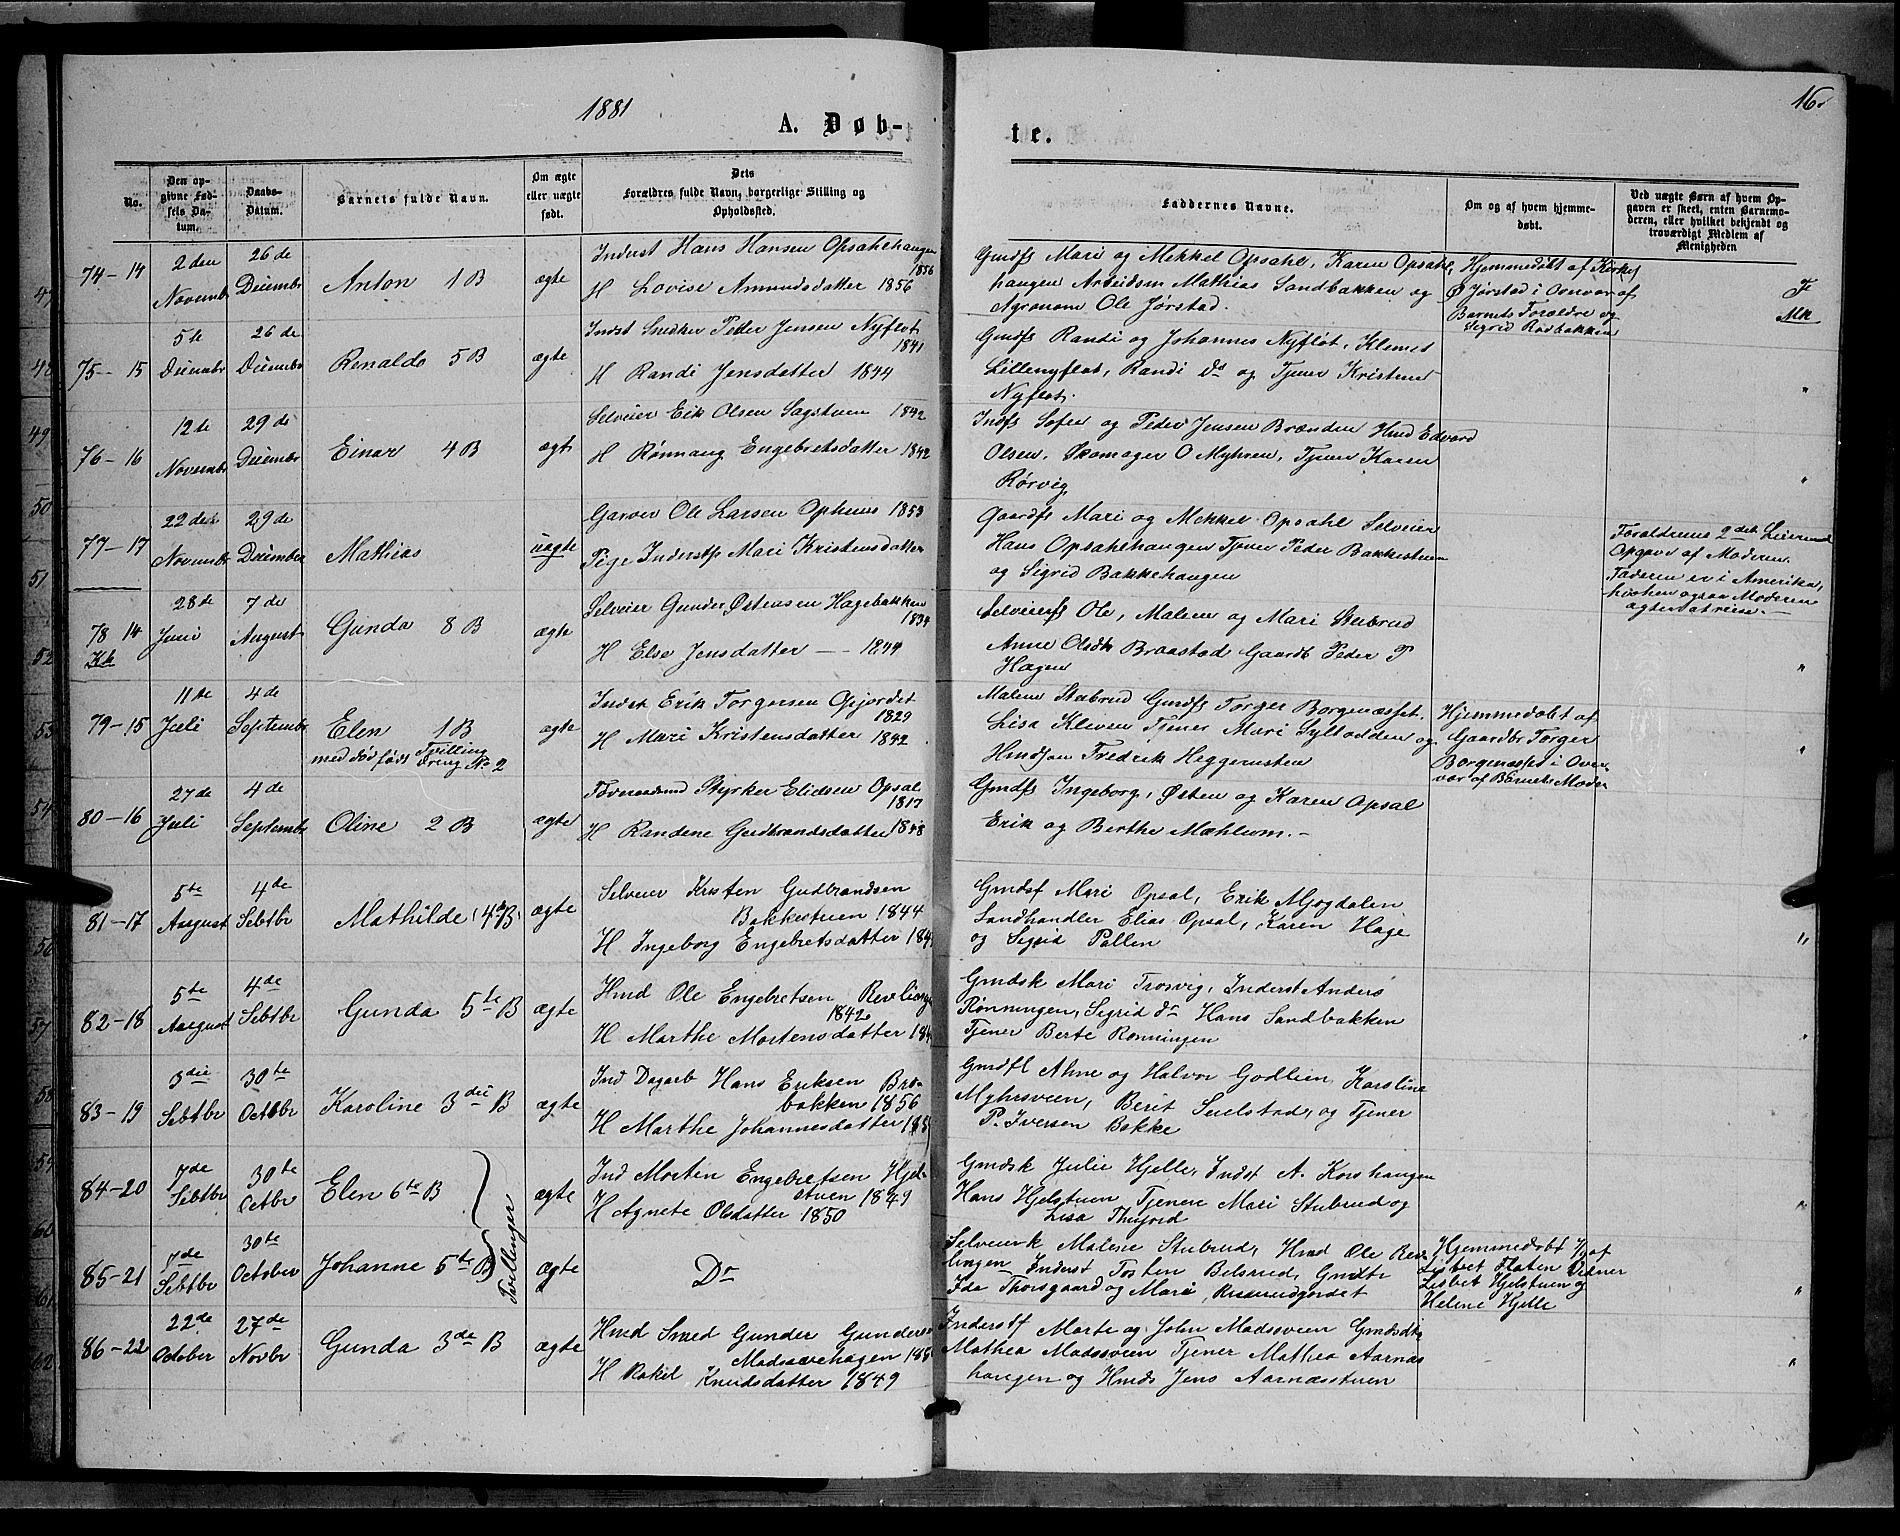 1881
A. Døb-
te.
16
No.
Den op-
givne Fød-
sels Da-
tum.
Daabs-
Datum.
Barnets fulde Navn.
Om ægte
eller uægte
født.
Dets
Forældres fulde Navn, borgerlige Stilling og
Opholdssted.
Faddernes Navne.
Om og af hvem hjemme-
døbt.
Ved uægte Børn af hvem Op-
gaven er skeet, enten Barnemo-
deren, eller hvilket bekjendt og
troværdigt Medlem af
Menigheden
74-14
2den
Novembr
26de
Decembr
Anton 1 B
ægte
Inderst Hans Hansen Opsahlhaugen
1856
H Lovise Amundsdatter 1856
Gmdfk Mari og Mekkel Opsahl, Karen Opsahl-
haugen Arbeidsm Mathias Sandbakken og
Agronom Ole Jørstad.
Hjemmedøbt af Kirkes
Ø Jørstad i Overvær af
Barnets Forældre og
Sigrid Rødbakken
75-15
5te
Decembr
26de
Decembr
Renaldo 5 B
ægte
Indst Snedker Peder Jensen Nyfløt
1841
H Randi Jensdatter 1844
Gmdfk Randi og Johannes Nyfløt, Klemet
Lillenyfløt, Randi do og Tjener Kristine
Nyfløt.
"
76-16
12te
Novembr
29de
Decembr
Einar 4 B
ægte
Selveier Erik Olsen Sagstuen 1842
H Rønnaug Engebretsdatter 1842
Indfk Sofie og Peder Jensen Brænden Hmd Edvard
Olsen, Skomager O Myhren, Tjener Karen
Rørvig
"
77-17
22den
Novembr
29de
December
Mathias
uægte
Garver Ole Larsen Ophuus 1853
Pige Inderstfk Mari Kristensdatter
Gaardfk Mari og Mekkel Opsahl Selveier
Hans Opsahlhaugen Tjener Peder Bakkestuen
og Sigrid Bakkehaugen
Forældrenes 2det Leiermaal
Opgave af Moderen.
Faderen er i Amerika,
hvorhen ogsaa Moderen
agter at reise.
78 14
28de
Juni
7de
August
Gunda 8 B
ægte
Selveier Gunder Østensen Hagebakken
1834
H Else Jensdatter 1844
Selveierfk Ole, Malene og Mari Stubrud
Anne Olsdtr Braastad Gaardb Peder P
Hagen
"
79-15
11te
Juli
4de
Septembr
Elen 1 B
med dødfødt Tvilling
Dreng No 2
ægte
Indst Erik Torgersen Gjordet
1829
H Mari Kristensdatter 1842
Malene Stubrud Gmdfk Torger Borgenæsset.
Lisa Kleven Tjener Mari Sylladden og
Hmdsøn Fredrik Heggerusten
Hjemmedøbt af
Gaardbr Torger
Borgenæsset i Over-
vær af Barnets Moder
"
80-16
27de
Juli
4de
Septembr
Oline 2 B
ægte
Styrker Eliesen Opsal
1817
H Randine Gudbrandsdatter 1848
Gmdfk Ingeborg, Østen og Karen Opsal
Erik og Berthe Mæhlum.
81-17
5te
August
4de
Sebtbr
Mathilde 4 B
ægte
Selveier Kristen Gudbrandsen
Bakkestuen 1844
H Ingeborg Engebretsdatter
Gmdsf Mari Opsal, Erik Mjøgdalen
Landhandler Elias Opsal, Karen Hage
og Sigrid Pallen
"
82-18
5te
August
4de
Sebtbr
Gunda 5te B
ægte
Hmd Ole Engebretsen Revling
1842
H Marthe Mortensdatter
Gmdsk Mari Trosvig, Inderst Anders
Rønningen, Sigrid do Hans Sandbakken
Tjener Berte Rønningen
"
83-19
3die
Sebtbr
30te
Octbr
Karoline 3die B
ægte
Ind Dagarb Hans Eriksen Bro-
bakken 1856
H Marthe Johannesdatter
Gmdfk Anne og Halvor Godlien Karoline
Myhrsveen, Berit Seielstad, og Tjener
P. Iversen Bakke
84-20
7de
Sebtbr
30te
Octbr
Elen 6te B
Tvillinger
ægte
Ind Morten Engebretsen Hjel-
stuen 1849
H Agnete Olsdatter 1850
Gmdsk Julie Hjelle, Indst A. Korshaugen
Hans Hjelstuen Tjenere Mari Stubrud og
Lisa
"
85-21
7de
Sebtbr
30te
October
Johanne 5te B
ægte
Do
Selveierk Malene Stubrud, Hmd Ole Rev-
lingen Inderst Tosten Belsrud,
Ida Thorsgaard og Mari
Hjemmedøbt af
Lisbet Flaten
Lisbet Hjelstuen og
Helene Hjelle
"
86-22
22de
October
27de
Novbr
Gunda 3de B
ægte
Hmd Smed Gunder Gunders
H Rakel Knudsdatter 1849
Inderstf Marte og John Madsveen
Mathea Madsveen Tjener Mathea Aarnæs
haugen og Hmds Jens Aarnæsstuen
"